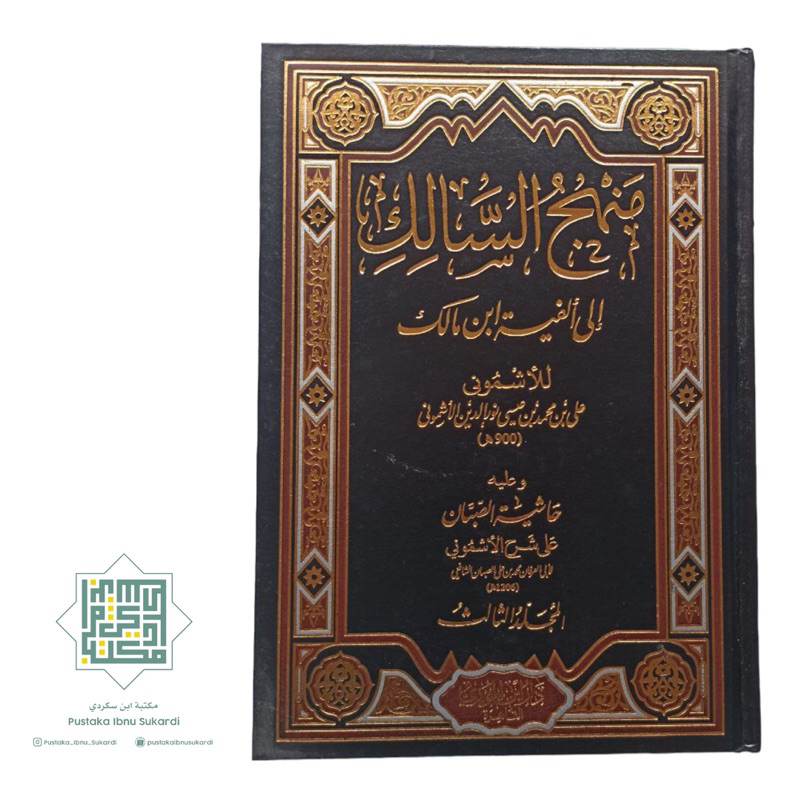 مَنهَجُ السَّالِكِ
إلى ألفية ابن مالك
للأشموني
علي بن محمد بن عيسى نور الدين الأشموني
(900هـ)
وعليه
حاشية الصبان
على شرح الأشموني
لأبي العرفان محمد بن علي الصبان الشافعي
(1206هـ)
المجلد الثالث
مكتبة ابن سكردي
Pustaka Ibnu Sukardi
Pustaka_Ibnu_Sukardi
pustakaibnusukardi